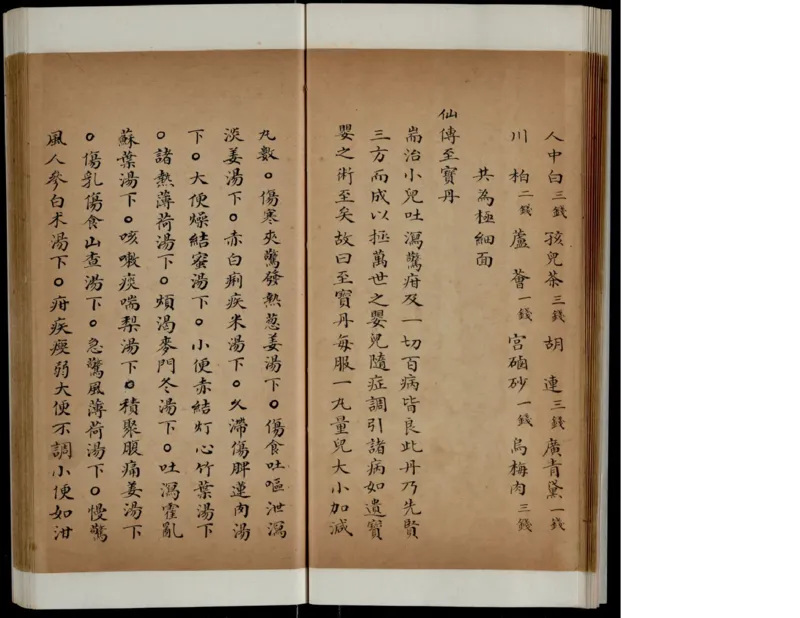 人中白三錢 孩兒茶三錢 胡連三錢 廣青黛一錢
川柏二錢 蘆薈一錢 宮硇砂一錢 烏梅肉三錢
共為極細面
仙傳至寶丹
耑治小兒吐瀉驚疳及一切百病皆良此丹乃先賢
三方而成以拯萬世之嬰兒隨症調引諸病如遺寶
嬰之術至矣故曰至寶丹每服一丸量兒大小加減
丸數○傷寒夾驚發熱葱姜湯下○傷食吐嘔泄瀉
淡姜湯下○赤白痢疾米湯下○久滯傷脾蓮肉湯
下○大便燥結蜜湯下○小便赤結灯心竹葉湯下
○諸熱薄荷湯下○煩渴麥門冬湯下○吐瀉霍亂
蘇葉湯下○咳嗽痰喘梨湯下○積聚腹痛姜湯下
○傷乳傷食山查湯下○急驚風薄荷湯下○慢驚
風人參白朮湯下○疳疾瘦弱大便不調小便如泔